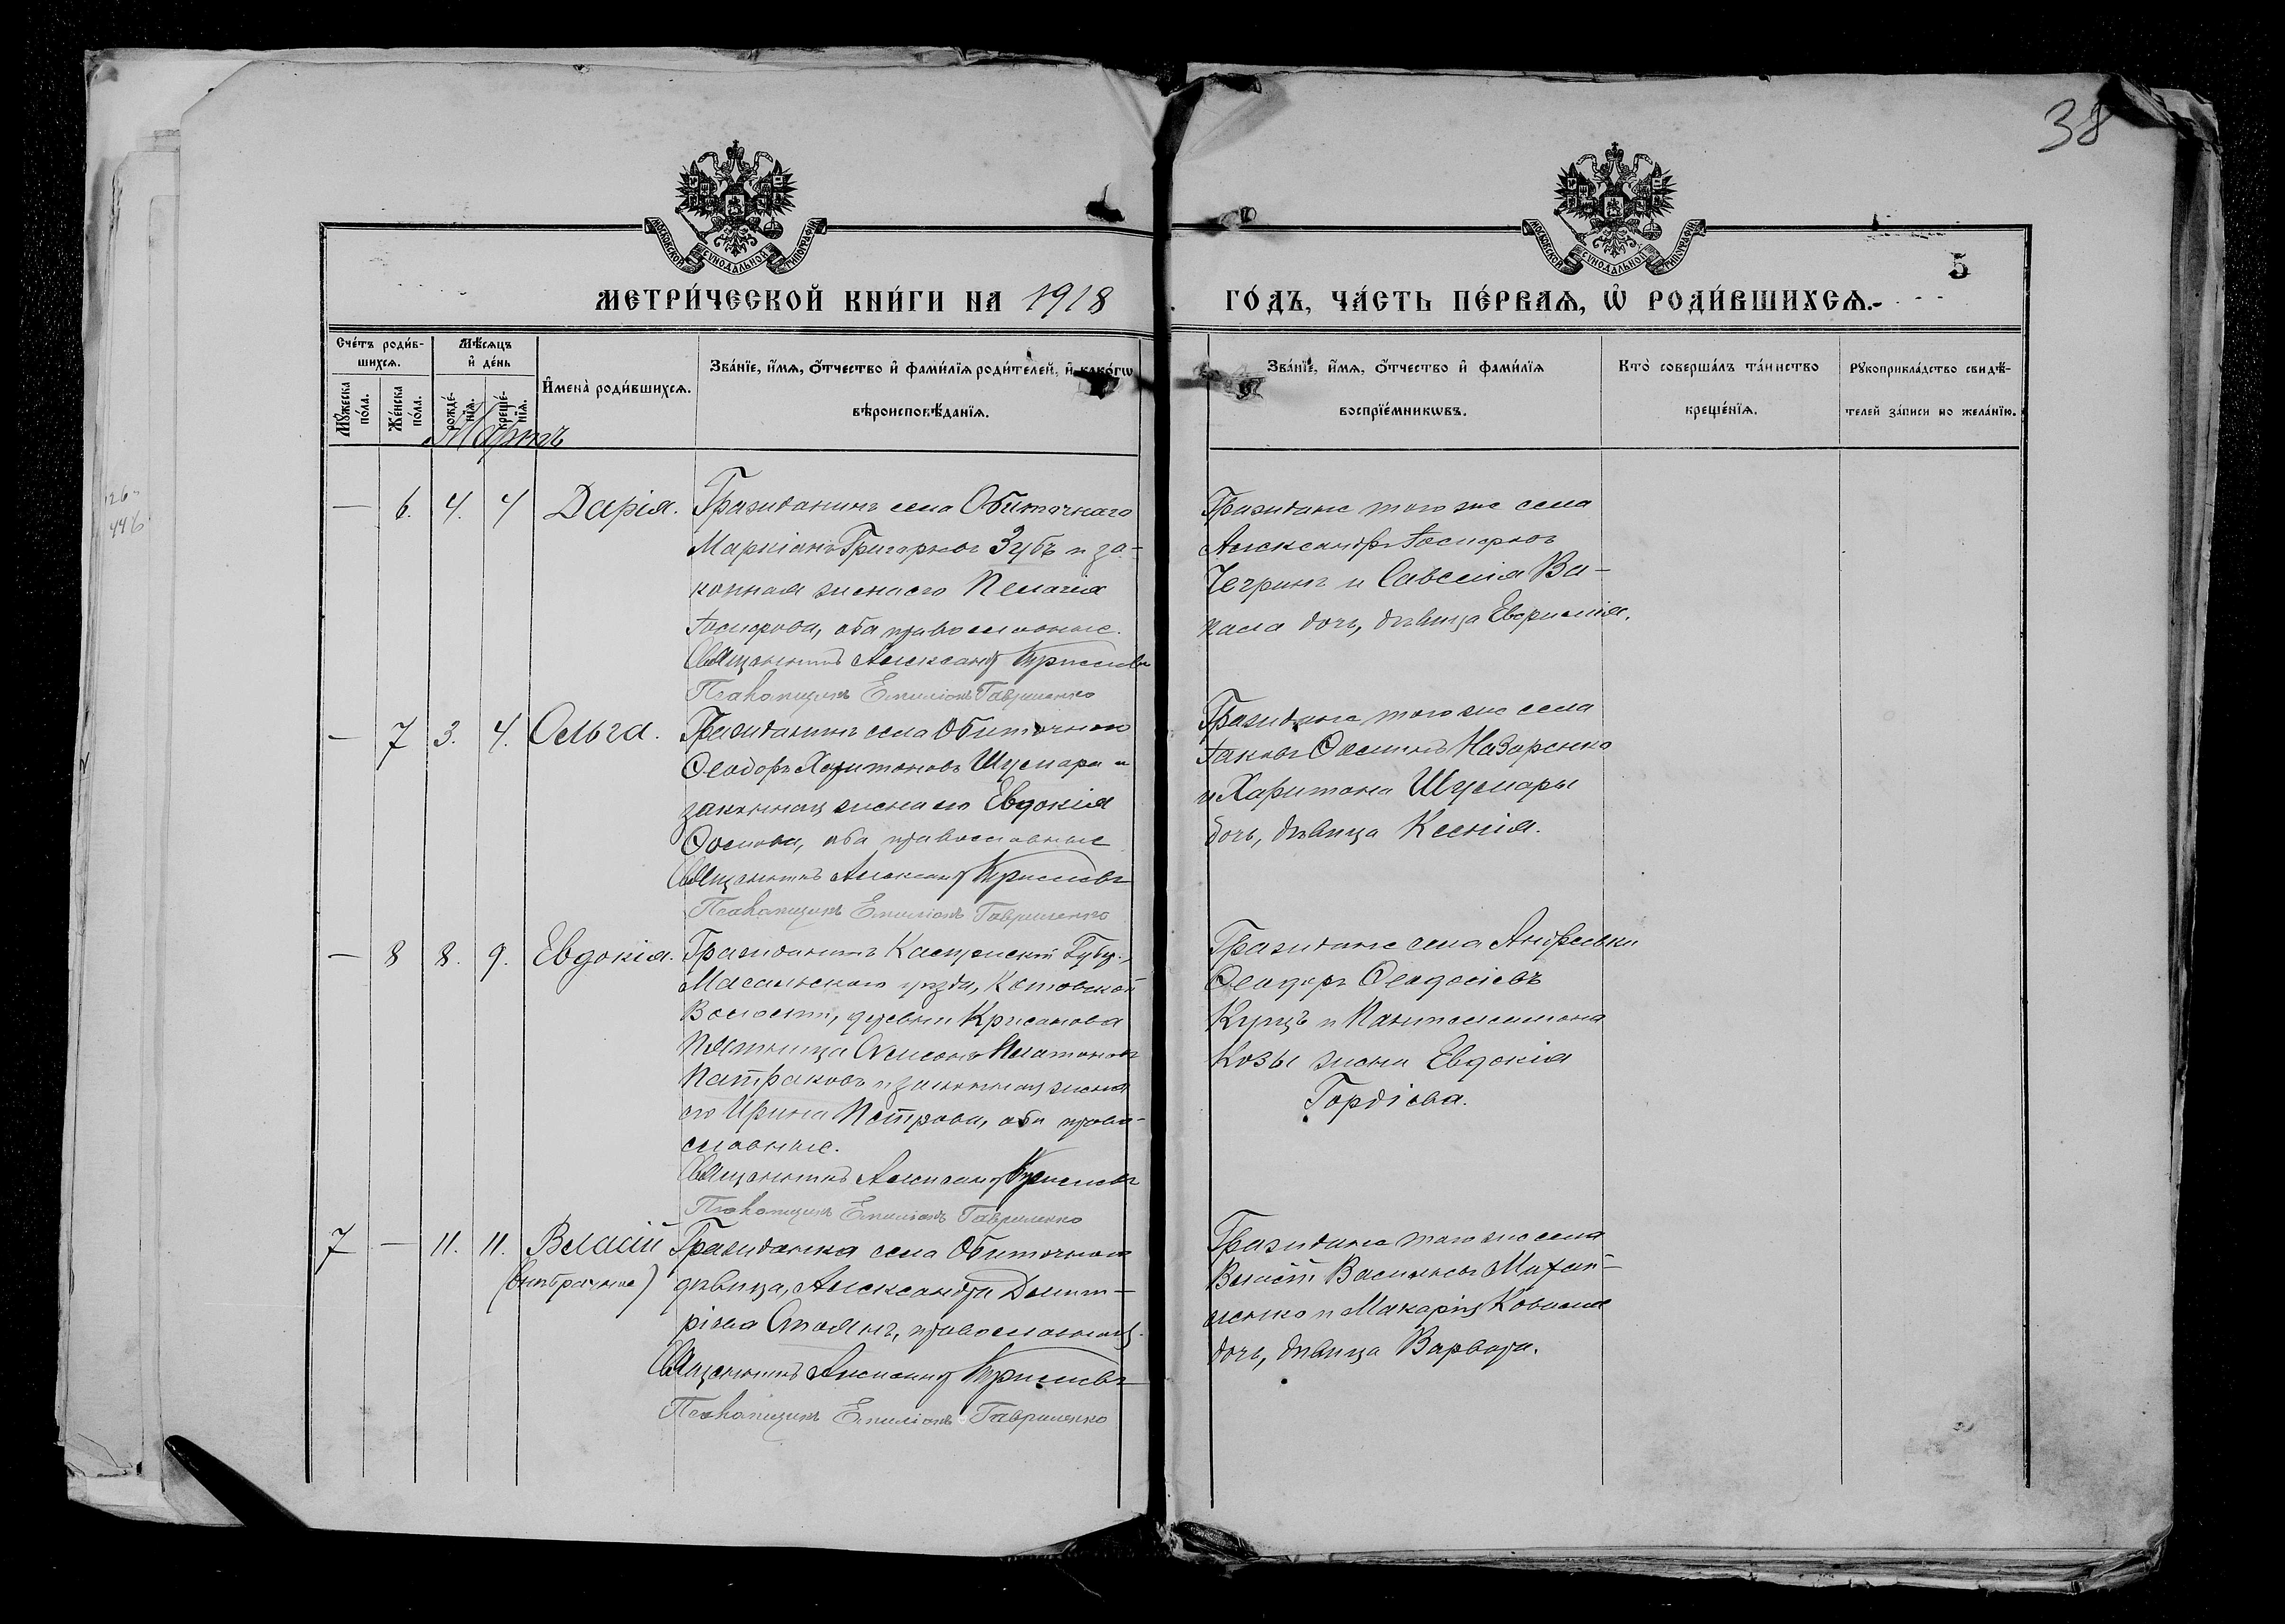 38
МОСКОВСКОЙ СѴНОДАЛЬНОЙ ТИПОГРАФІИ
МОСКОВСКОЙ СѴНОДАЛЬНОЙ ТИПОГРАФІИ
5
МЕТРИ́ЧЕСКОЙ КНИ́ГИ НА 1918
ГО́ДЪ, ЧА́СТЬ ПЕ́РВАѦ, Ѡ҆ РОДИ́ВШИХСѦ.
Сче́тъ роди́в-
шихсѧ.
Мѣ́сѧцъ
и҆ де́нь
Мꙋ́жеска по́ла.
Же́нска по́ла.
рожде́-нїѧ.
креще́-нїѧ.
И҆мена̀ роди́вшихсѧ.
Зва́нїе, и҆́мѧ, ѻ҆́тчество и҆ фами́лїѧ роди́телей, и҆ како́гѡ
вѣроисповѣ́данїѧ.
Зва́нїе, и҆́мѧ, ѻ҆́тчество и҆ фами́лїѧ
воспрїе́мникѡвъ.
Кто̀ соверша́лъ та́инство
креще́нїѧ.
Рꙋкоприкла́дство свидѣ́-
телей за́писи по жела́нїю.
Мартъ
— 6. 4. 4 Дарія.
Гражданинъ села Обиточнаго
Маркіанъ Григорьевъ Зубъ и за-
конная жена его Пелагія
Іосифова, оба православные.
Священникъ Александръ
Псаломщикъ Емиліанъ Гавриленко
Граждане того же села
Александръ Іосифовъ
и Савелія Ва-
дочь, дѣвица Евфимія.
— 7 3. 4. Ольга.
Гражданинъ села Обиточнаго
Ѳеодоръ Харитоновъ Шулмара и
законная жена его Евдокія
оба православные
Священникъ Александръ
Псаломщикъ Емиліанъ Гавриленко
Граждане того же села
Іаковъ Назаренко
и Харитона Шулмары
дочь, дѣвица Ксенія.
— 8 8. 9. Евдокія.
Гражданинъ Калужской Губер.,
Масальскаго уѣзда,
Волости, деревни
Платоновъ
Патраковъ и законная жена
его Ирина Петрова, оба право-
славные.
Священникъ Александръ
Псаломщикъ Емиліанъ Гавриленко
Граждане села Андреевки
Ѳеодоръ Ѳеодосіевъ
Купцъ и Пантелеимона
Козы жена Евдокія
Гордіева.
7 — 11. 11. Власій
(внѣбрачное)
Гражданка села Обиточнаго
дѣвица, Александра Димит-
ріева православная.
Священникъ Александръ
Псаломщикъ Емиліанъ Гавриленко
Граждане того же села
Власій Васильевъ Михай-
ленко и Макарія Коваля
дочь, дѣвица Варвара.